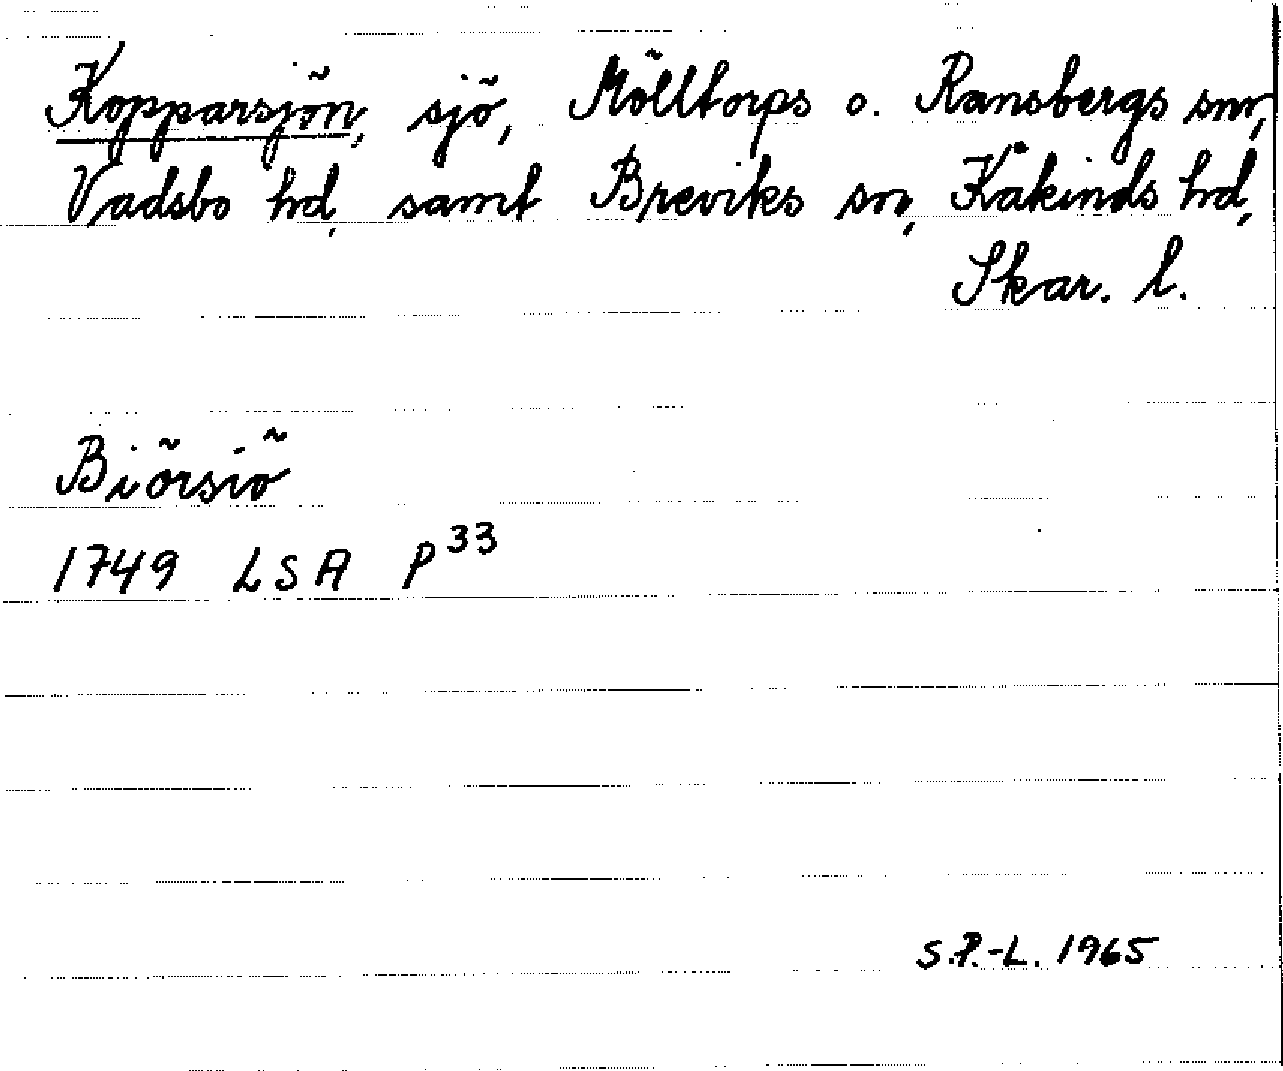 Kopparsjön, sjö, Mölltorps o. Ransbergs snr,
Vadsbo hd, samt Breviks sn, Kåkinds hd,
Skar. l.
Biörsiö
1749 LSA P 33
S.P.-L. 1965